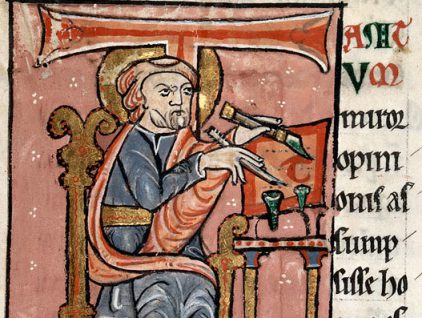 TANT
VM
miror
opini
onis as
sump
sisse ho